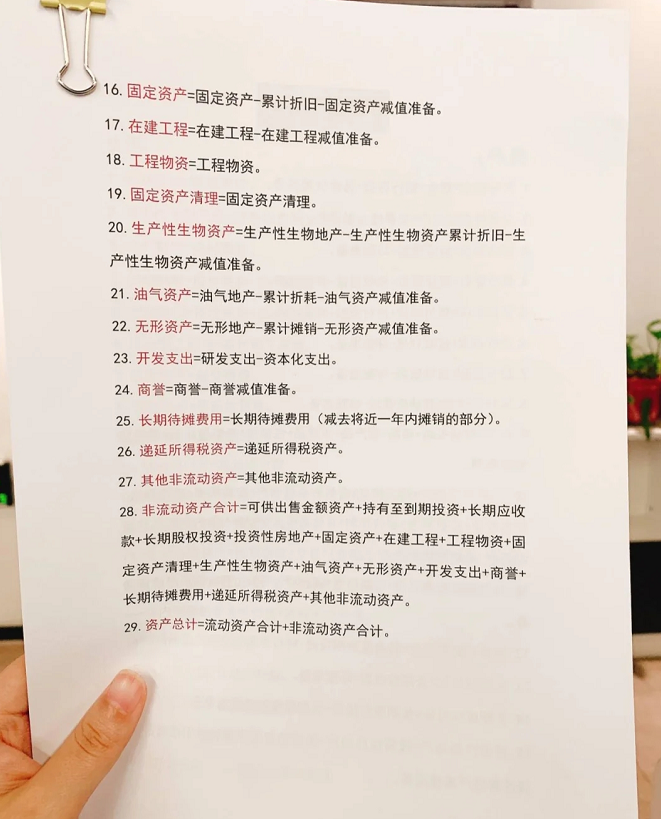 16. 固定资产=固定资产-累计折旧-固定资产减值准备。
17. 在建工程=在建工程-在建工程减值准备。
18. 工程物资=工程物资。
19. 固定资产清理=固定资产清理。
20. 生产性生物资产=生产性生物地产-生产性生物资产累计折旧-生
产性生物资产减值准备。
21. 油气资产=油气地产-累计折耗-油气资产减值准备。
22. 无形资产=无形地产-累计摊销-无形资产减值准备。
23. 开发支出=研发支出-资本化支出。
24. 商誉=商誉-商誉减值准备。
25. 长期待摊费用=长期待摊费用（减去将近一年内摊销的部分）。
26. 递延所得税资产=递延所得税资产。
27. 其他非流动资产=其他非流动资产。
28. 非流动资产合计=可供出售金额资产+持有至到期投资+长期应收
款+长期股权投资+投资性房地产+固定资产+在建工程+工程物资+固
定资产清理+生产性生物资产+油气资产+无形资产+开发支出+商誉+
长期待摊费用+递延所得税资产+其他非流动资产。
29. 资产总计=流动资产合计+非流动资产合计。